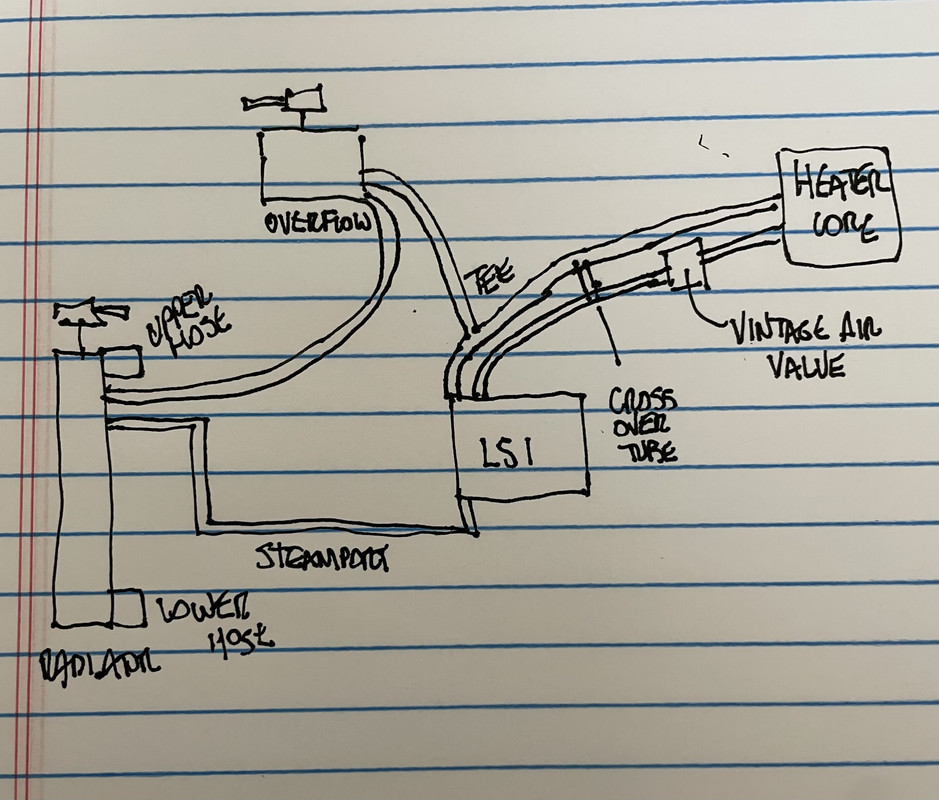 OVERFLOW
HEATER
CORE
TEE
UPPER
HOSE
VINTAGE AIR
VALUE
CROSS
OVER
TUBE
LS1
STEAMPORT
LOWER
HOSE
RADIATR